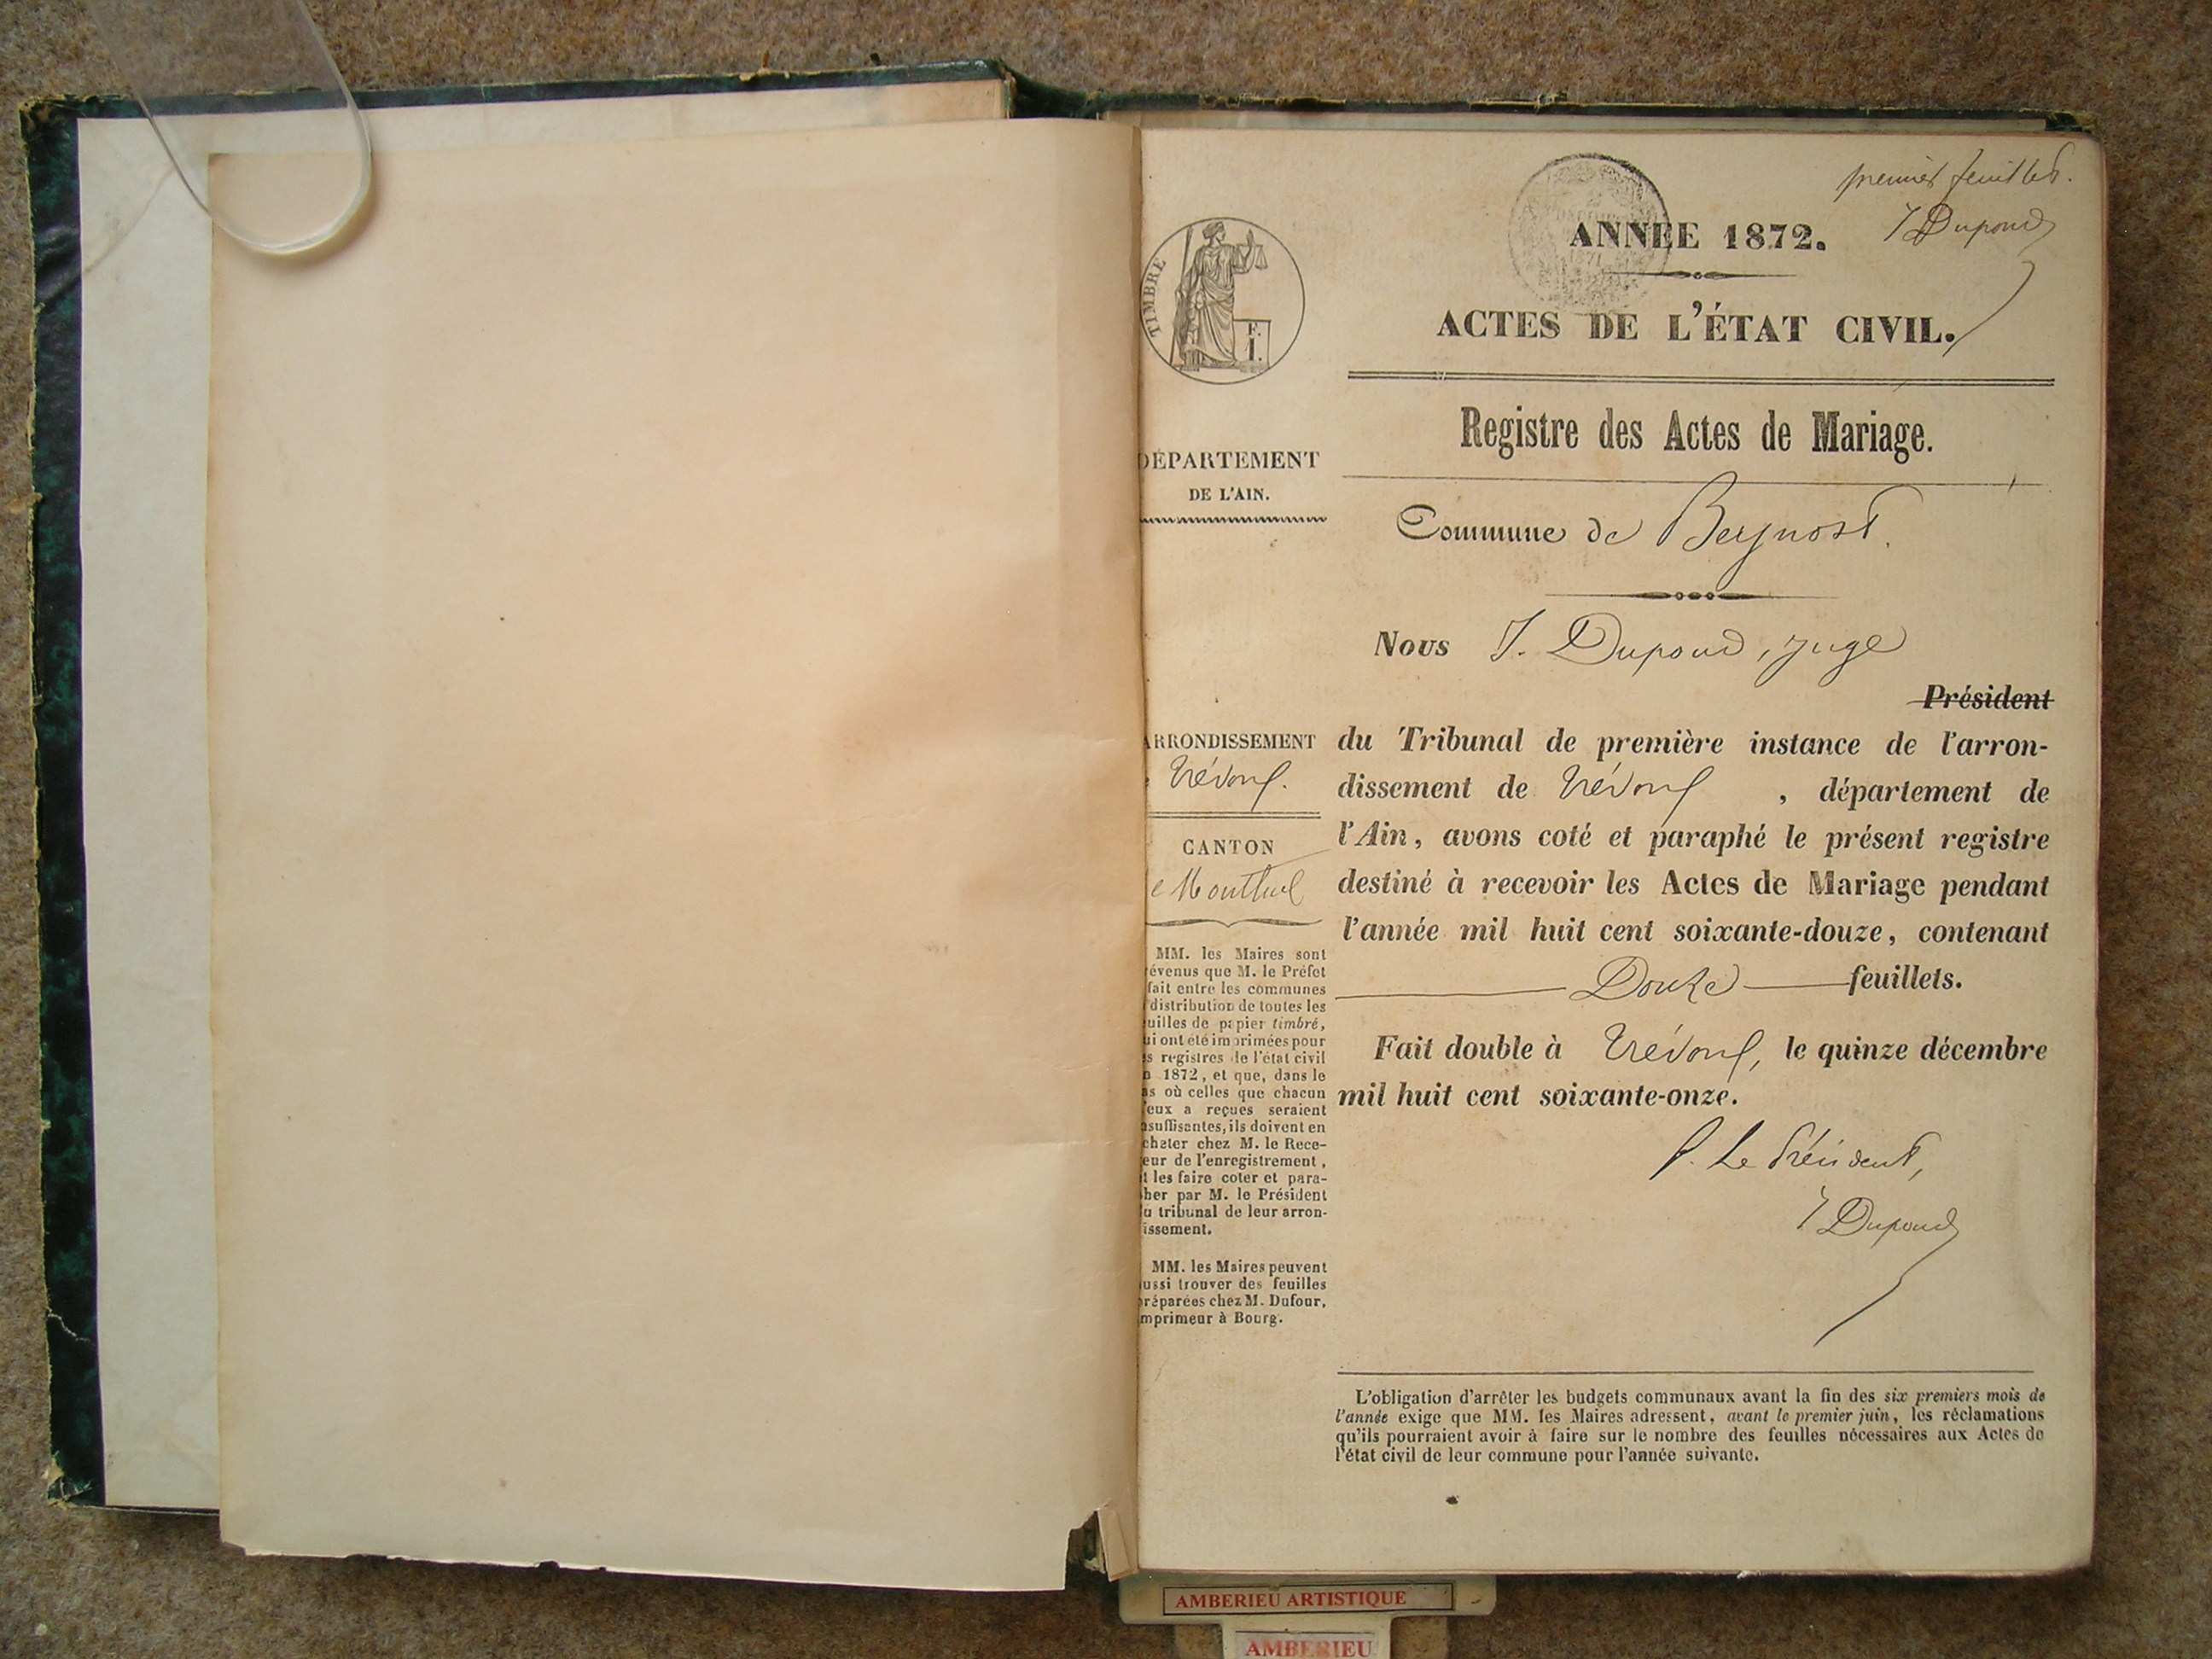 premier feuillet.
J Dupond
TIMBRE
F.
I.
ANNÉE 1872.
1871
ACTES DE L'ÉTAT CIVIL.
Registre des Actes de Mariage.
DÉPARTEMENT
DE L'AIN.
Commune de Beynost.
Nous J. Dupond, juge
Président
ARRONDISSEMENT
Trévoux.
CANTON
e Montluel
du Tribunal de première instance de l'arron-
dissement de Trévoux , département de
l'Ain, avons coté et paraphé le présent registre
destiné à recevoir les Actes de Mariage pendant
l'année mil huit cent soixante-douze, contenant
Douze feuillets.
Fait double à Trévoux, le quinze décembre
mil huit cent soixante-onze.
P. Le Président,
J Dupond
MM. les Maires sont
évenus que M. le Préfet
fait entre les communes
distribution de toutes les
uilles de papier timbré,
ui ont été imprimées pour
s registres de l'état civil
n 1872, et que, dans le
as où celles que chacun
'eux a reçues seraient
nsuffisantes, ils doivent en
cheter chez M. le Rece-
eur de l'enregistrement,
t les faire coter et para-
her par M. le Président
u tribunal de leur arron-
issement.
MM. les Maires peuvent
ussi trouver des feuilles
réparées chez M. Dufour,
mprimeur à Bourg.
L'obligation d'arrêter les budgets communaux avant la fin des six premiers mois de
l'année exige que MM. les Maires adressent, avant le premier juin, les réclamations
qu'ils pourraient avoir à faire sur le nombre des feuilles nécessaires aux Actes de
l'état civil de leur commune pour l'année suivante.
AMBERIEU ARTISTIQUE
AMBERIEU